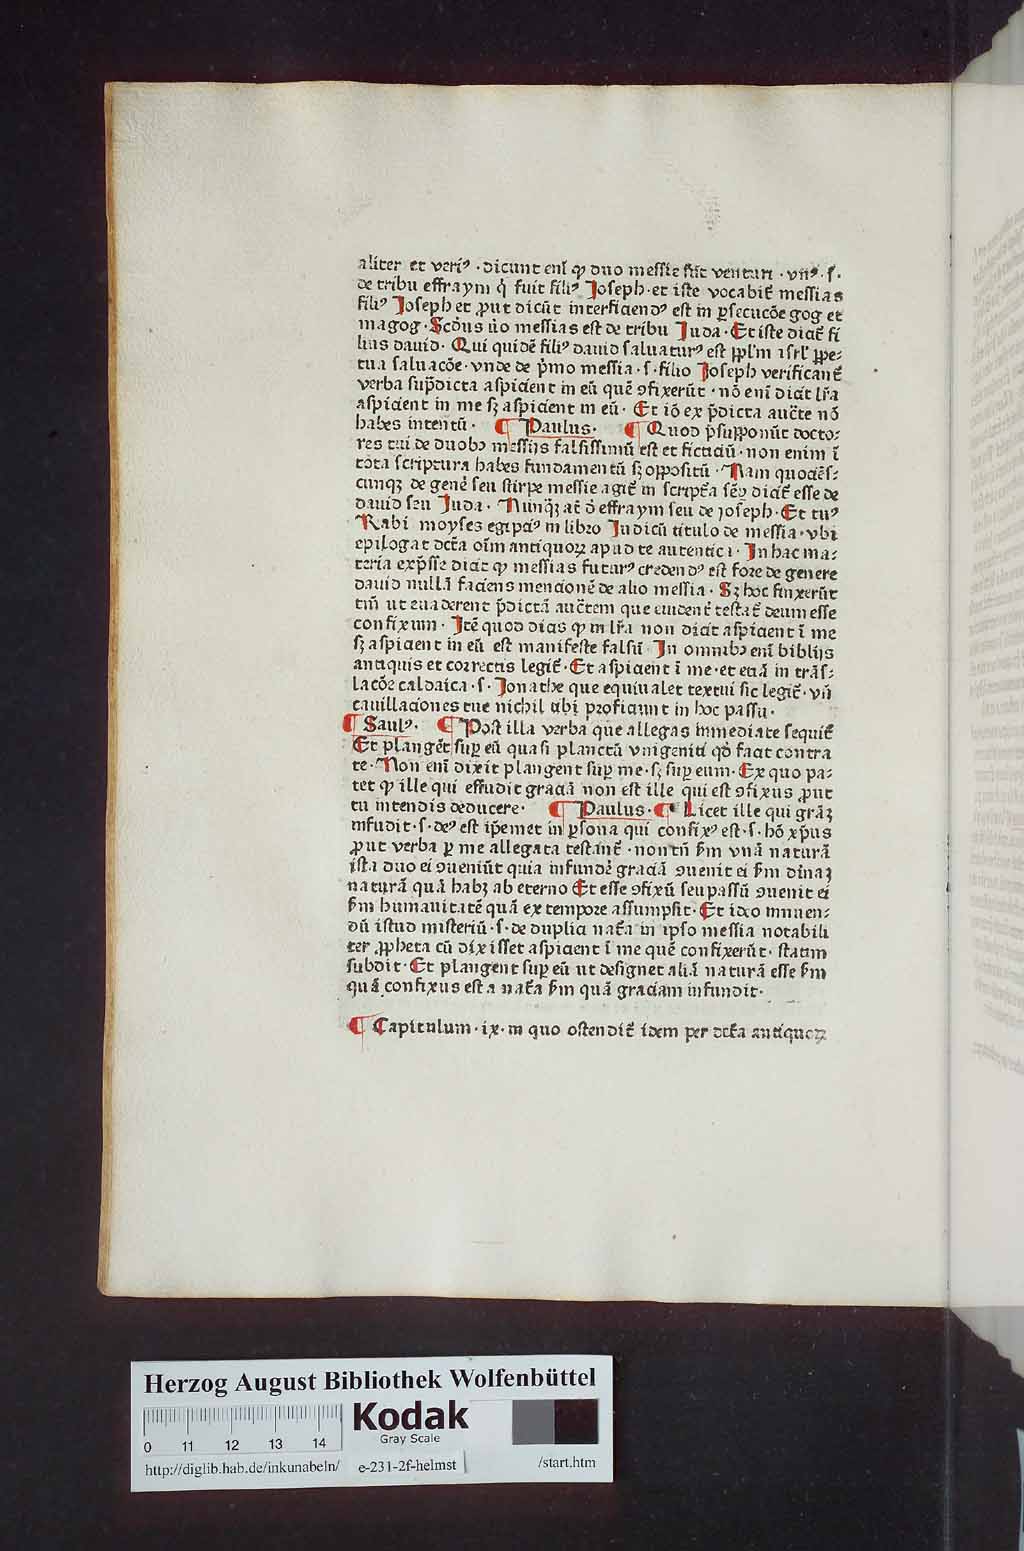 aliter et veriꝰ · dicunt eni̅ ꝙ duo messie su̅t venturi · vn̅ꝰ · s̅ ·
de tribu effraym q̇ fuit filiꝰ Joseph · et iste vocabit̅ messias
filiꝰ Joseph et ꝓut dicu̅t interficiendꝰ est in ꝑsecuco̅e gog et
magog · Scd̅us v̅o messias est de tribu Juda · Et iste dicit̅ fi
lius dauid · Qui quide̅ filiꝰ dauid saluaturꝰ est ppl̅m isrl̅ ꝑpe⸗
tua saluaco̅e · vnde de p̅mo messia · s · filio Joseph verificant̅
verba sup̅dicta aspicient in eu̅ que̅ ꝯfixeru̅t · no̅ eni̅ dicit lr̅a
aspicient in me sꝫ aspicient in eu̅ · Et io̅ ex p̅dicta auct̅e no̅
habes intentu̅ · ¶ Paulus · ¶ Quod p̅supponu̅t docto⸗
res tui de duobꝰ messijs falsissimu̅ est et ficticiu̅ · non enim i̅
tota scriptura habes fundamentu̅ sꝫ oppositu̅ · Nam quocie̅s⸗
cunqꝫ de gene̅ seu stirpe messie agit̅ in script̅a se̅ꝑ dicit̅ esse de
dauid seu Juda · Nunq̅ꝫ at̅ d̅ effraym seu de joseph · Et tuꝰ
Rabi moyses egipciꝰ in libro Judicu̅ titulo de messia · vbi
epilogat dct̅a oi̅m antiquoꝝ apud te autentica · In hac ma⸗
teria exp̅sse dicit ꝙ messias futurꝰ credendꝰ est fore de genere
dauid nulla̅ faciens mencione̅ de alio messia · Sꝫ hoc finxeru̅t
tm̅ ut euaderent p̅dicta̅ auct̅em que euident̅ testat̅ deum esse
confixum · Ite̅ quod dicis ꝙ in lr̅a non dicit aspicient i̅ me
sꝫ aspicient in eu̅ est manifeste falsu̅ · In omnibꝰ eni̅ biblijs
antiquis et correctis legit̅ · Et aspicient i̅ me · et etia̅ in tra̅s⸗
laco̅e caldaica · s · Jonathe que equiualet textui sic legit̅ · vn̅
cauillaciones tue nichil tibi proficiunt in hoc passu ·
¶ Saulꝰ · ¶ Post illa verba que allegas immediate sequit̅
Et plange̅t suꝑ eu̅ quasi planctu̅ vnigeniti qd̅ facit contra
te · Non eni̅ dixit plangent suꝑ me · sꝫ suꝑ eum · Ex quo pa⸗
tet ꝙ ille qui effudit gracia̅ non est ille qui est ꝯfixus ꝓut
tu intendis deducere · ¶ Paulus · ¶ Licet ille qui gra̅ꝫ
infudit · s · deꝰ est ip̅emet in ꝑsona qui confixꝰ est · s · ho̅ xp̅us
ꝓut verba ꝑ me allegata testant̅ · non tn̅ s̅m vna̅ natura̅
ista duo ei ꝯueniu̅t quia infunde̅ gracia̅ ꝯuenit ei s̅m diui̅aꝫ
natura̅ qua̅ habꝫ ab eterno Et esse ꝯfixu̅ seu passu̅ ꝯuenit ei
s̅m humanitate̅ qua̅ ex tempore assumpsit · Et ideo innuen⸗
du̅ istud misteriu̅ · s · de duplici nat̅a in ipso messia notabili
ter ꝓpheta cu̅ dixisset aspicient i̅ me que̅ confixeru̅t · statim
subdit · Et plangent suꝑ eu̅ ut designet alia̅ natura̅ esse s̅m
qua̅ confixus est a nat̅a s̅m qua̅ graciam infundit ·
¶ Capitulum · ix · in quo ostendit̅ idem per dct̅a antiquoꝝ
Herzog August Bibliothek Wolfenbüttel
Kodak
Gray Scale
0 11 12 13 14
http://diglib.hab.de/inkunabeln/ e-231-2f-helmst /start.htm